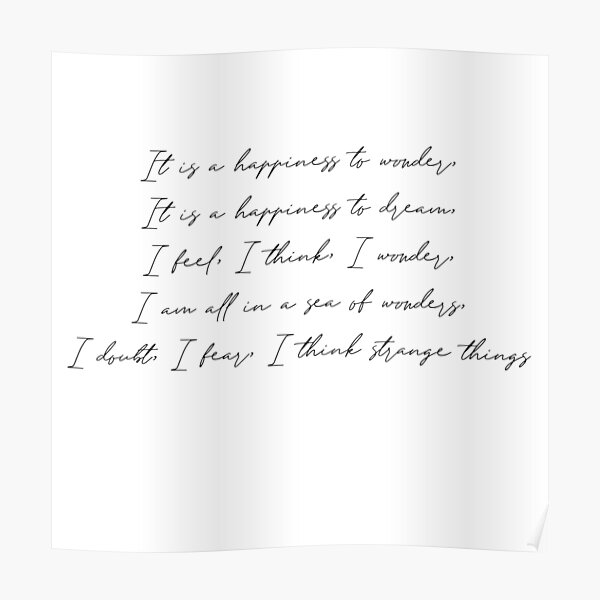 It is a happiness to wonder,
It is a happiness to dream,
I feel, I think, I wonder,
I am all in a sea of wonders,
I doubt, I fear, I think strange things